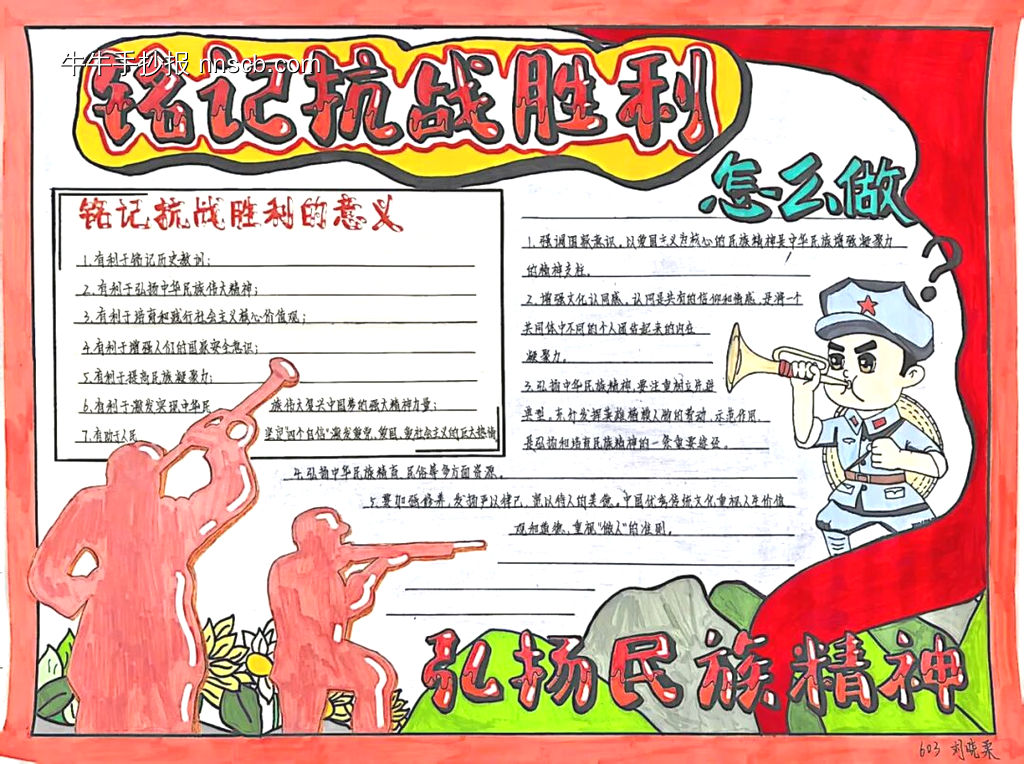 牛牛手抄报 nnscb.com
铭记抗战胜利
怎么做
?
铭记抗战胜利的意义
1.有利于铭记历史教训;
2.有利于弘扬中华民族伟大精神;
3.有利于培育和践行社会主义核心价值观;
4.有利于增强人们的国家安全意识;
5.有利于提高民族凝聚力;
6.有利于激发实现中华民 族伟大复兴中国梦的强大精神力量;
7.有助于人民 坚定"四个自信"激发爱党、爱国、爱社会主义的巨大热情
1.强调国家意识。以爱国主义为核心的民族精神是中华民族增强凝聚力
的精神支柱。
2.增强文化认同感。认同是共有的信仰和情感,是将一个
共同体中不同的个人团结起来的内在
凝聚力。
3.弘扬中华民族精神,要注重树立先进
典型,充分发挥英雄模范人物的带动、示范作用,
是弘扬和培育民族精神的一条重要途径。
4.弘扬中华民族精育,民俗等多方面资源。
5.要加强修养,发扬严以律己、宽以待人的美德。中国优秀传统文化重视人生价值
观和道德,重视"做人"的准则。
弘扬民族精神
603 刘晓